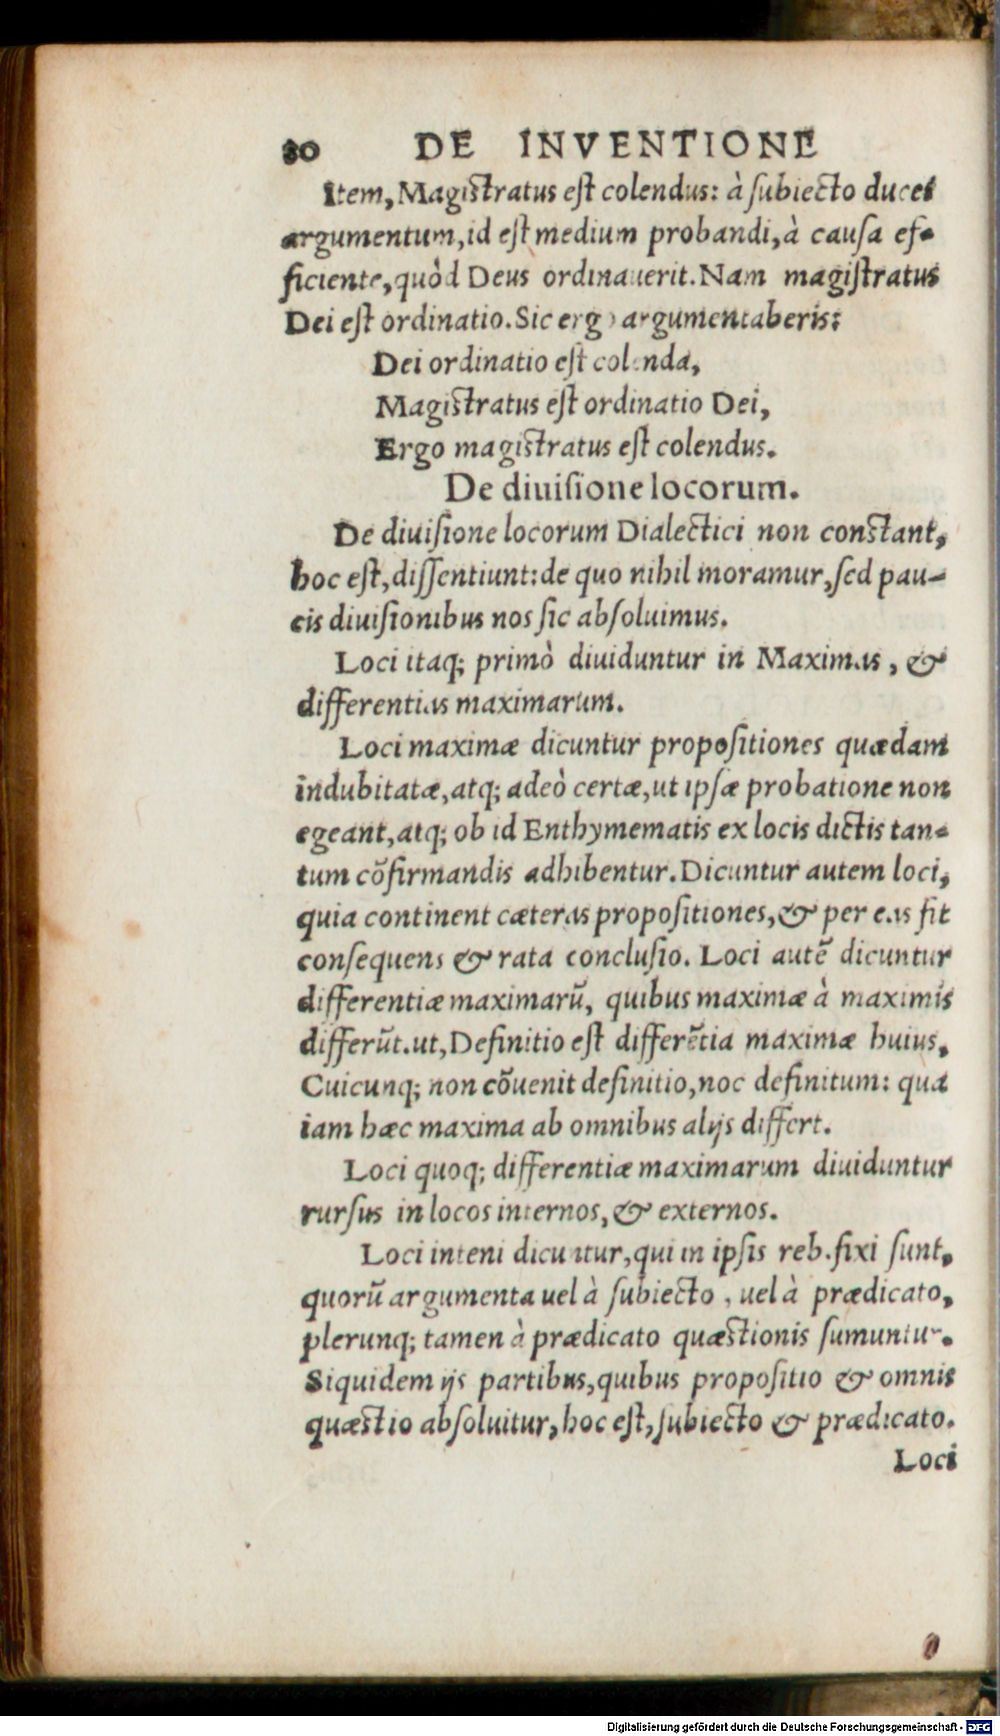 80 DE INVENTIONE
Item, Magistratus est colendus: à subiecto duces
argumentum, id est medium probandi, à causa ef-
ficiente, quòd Deus ordinauerit. Nam magistratus
Dei est ordinatio. Sic ergo argumentaberis:
Dei ordinatio est colenda,
Magistratus est ordinatio Dei,
Ergo magistratus est colendus.
De diuisione locorum.
De diuisione locorum Dialectici non constant,
hoc est, dissentiunt: de quo nihil moramur, sed pau-
cis diuisionibus nos sic absoluimus.
Loci itaq; primò diuiduntur in Maximas, &
differentias maximarum.
Loci maximæ dicuntur propositiones quædam
indubitatæ, atq; adeò certæ, ut ipsæ probatione non
egeant, atq; ob id Enthymematis ex locis dictis tan-
tum cõfirmandis adhibentur. Dicuntur autem loci,
quia continent cæteras propositiones, & per eas fit
consequens & rata conclusio. Loci autẽ dicuntur
differentiæ maximarũ, quibus maximæ à maximis
differũt. ut, Definitio est differẽtia maximæ huius,
Cuicunq; non cõuenit definitio, noc definitum: qua
iam hæc maxima ab omnibus alijs differt.
Loci quoq; differentiæ maximarum diuiduntur
rursus in locos internos, & externos.
Loci inteni dicuntur, qui in ipsis reb. fixi sunt,
quorũ argumenta uel à subiecto, uel à prædicato,
plerunq; tamen à prædicato quæstionis sumuntur.
Siquidem ijs partibus, quibus propositio & omnis
quæstio absoluitur, hoc est, subiecto & prædicato.
Loci
Digitalisierung gefördert durch die Deutsche Forschungsgemeinschaft - DFG